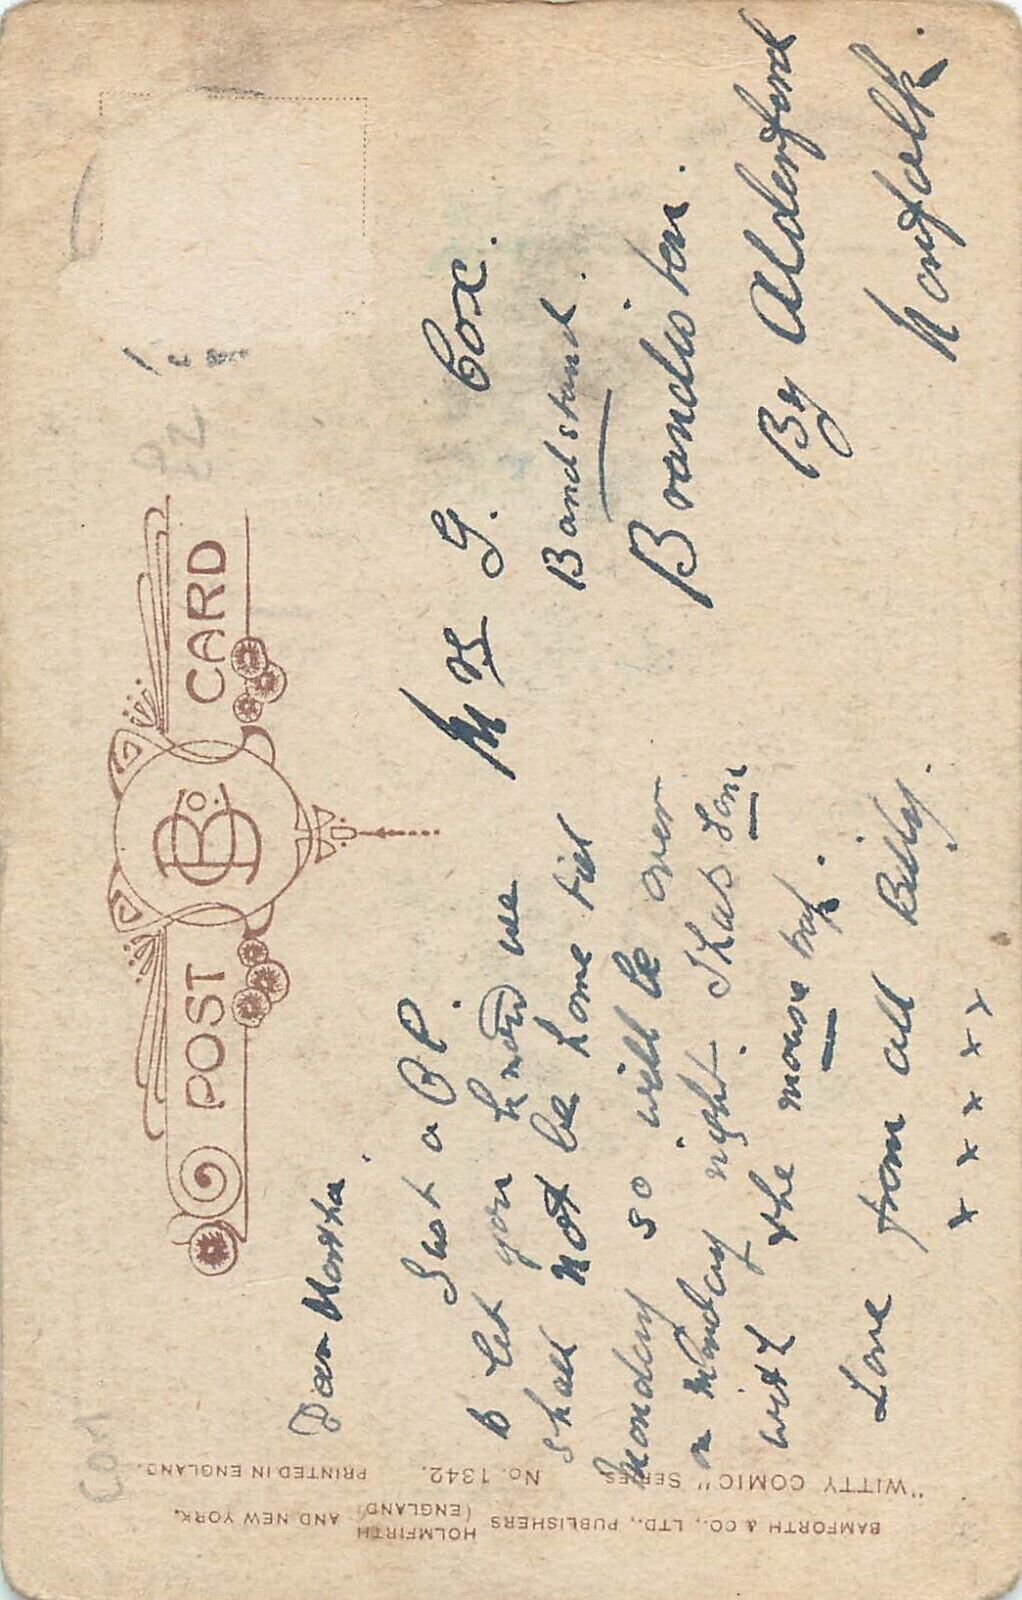 POST CARD
B & Co.
Dear Martha.
Just a P.P.
to let you know we
shall not be home till
monday so will be over
on Monday night. Thats
with the mouse trap.
Love from all Billy.
x x x x x
Mrs G. Cox.
Bandstand.
Brandiston.
By Alderford
Norfolk.
"WITTY COMIC" SERIES No. 1342. PRINTED IN ENGLAND.
BAMFORTH & CO., LTD., PUBLISHERS HOLMFIRTH (ENGLAND) AND NEW YORK.